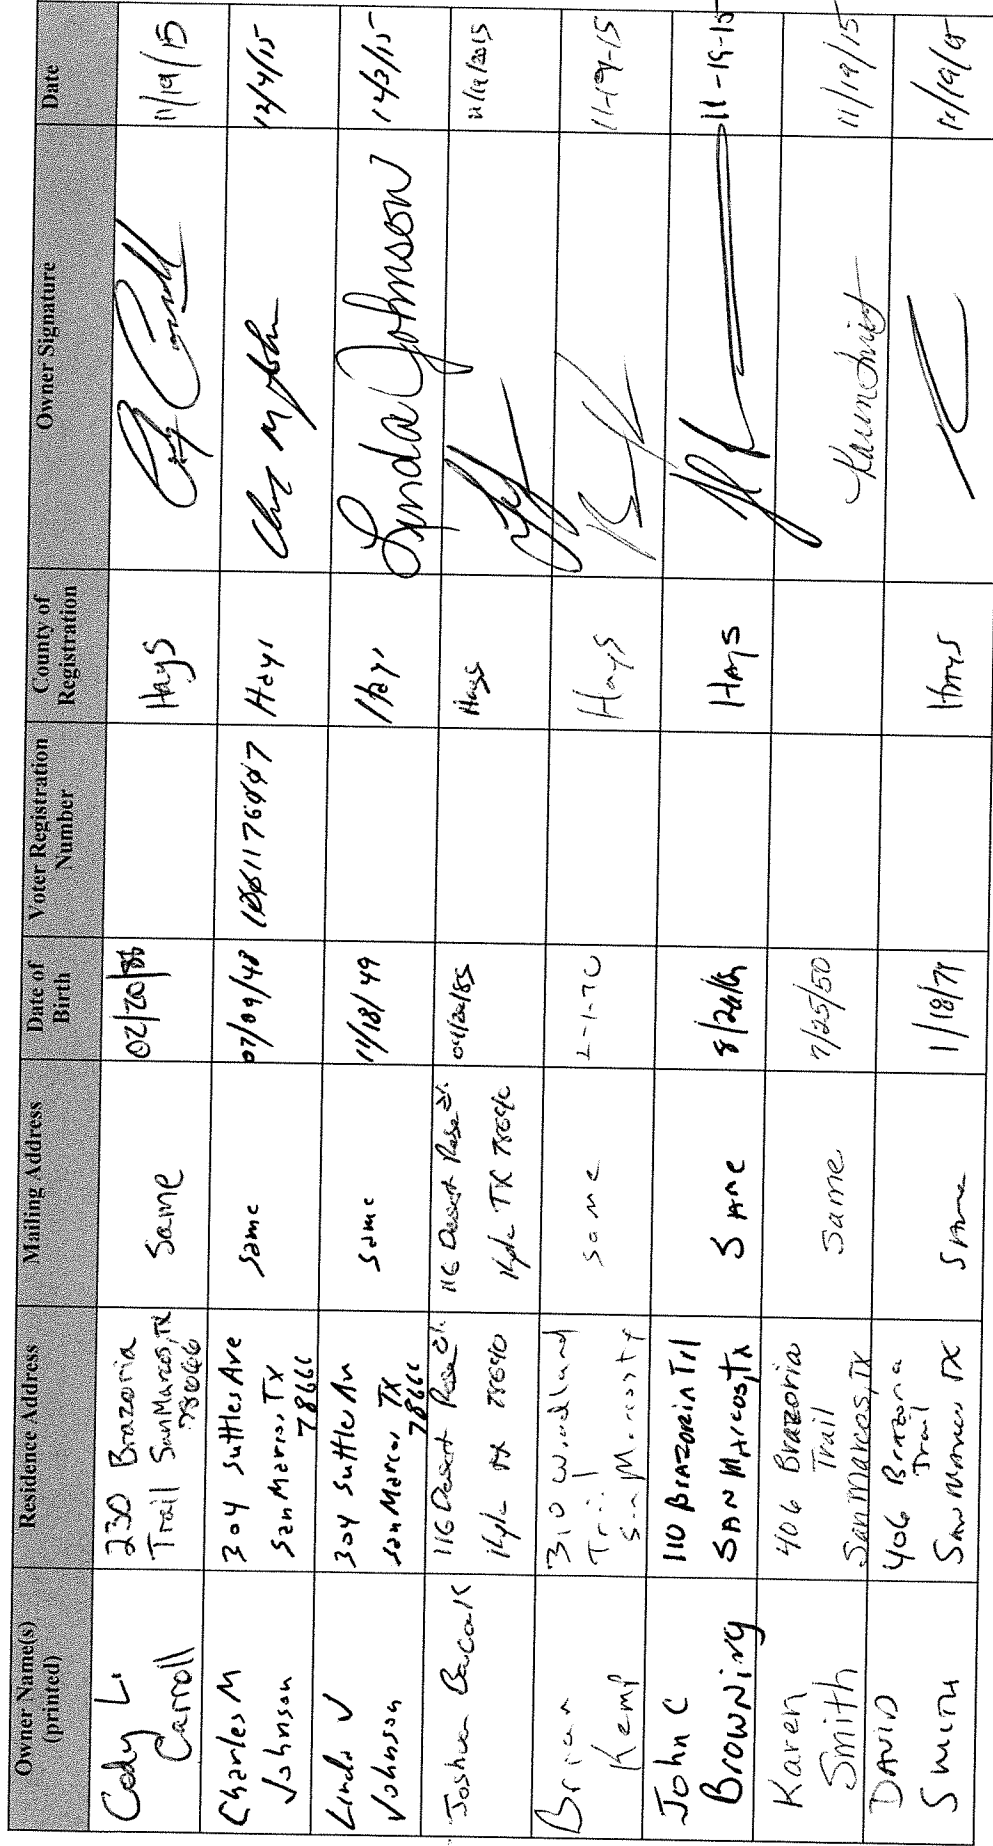 Owner Name(s)
(printed)
Residence Address
Mailing Address
Date of
Birth
Voter Registration
Number
County of
Registration
Owner Signature
Date
Cody L.
Carroll
230 Brazoria
Trail San Marcos, TX
78666
Same
02/20/86
Hays
11/19/15
Charles M
Johnson
304 Suttles Ave
San Marcos TX
78666
Same
07/09/48
Hays
12/4/15
Linda J
Johnson
304 Suttles Av
San Marcos TX
78666
Same
11/18/49
Hays
Linda Johnson
12/3/15
Joshua
116 Desert Rose
Kyle TX 78640
116 Desert Rose
Kyle TX 78640
Hays
11/19/2015
Brian
Kemp
310 Woodland
Trail
San Marcos TX
Same
2-1-70
Hays
11-19-15
John C
Browning
110 Brazoria Trl
San Marcos, TX
Same
Hays
11-19-15
Karen
Smith
406 Brazoria
Trail
San Marcos, TX
Same
7/25/50
Karen Smith
11/19/15
David
Smith
406 Brazoria
Trail
San Marcos TX
Same
Hays
11/19/15